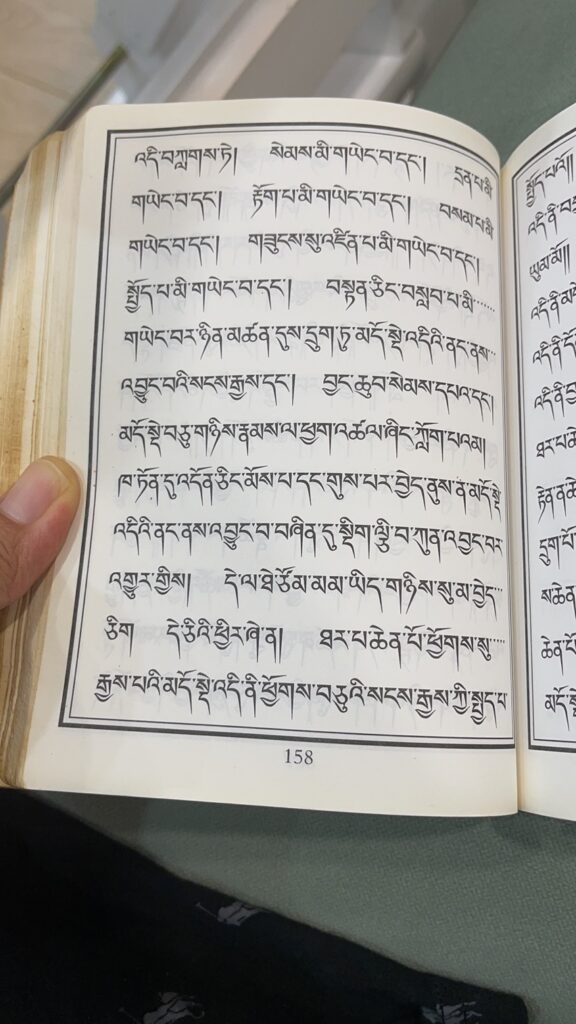 འདི་བཀླགས་ཏེ། སེམས་མི་གཡེང་བ་དང་། དྲན་པ་མི་
གཡེང་བ་དང་། རྟོག་པ་མི་གཡེང་བ་དང་། བསམ་པ་མི་
གཡེང་བ་དང་། གཟུངས་སུ་འཛིན་པ་མི་གཡེང་བ་དང་།
སྤྱོད་པ་མི་གཡེང་བ་དང་། བསྟན་ཅིང་བསླབ་པ་མི་……
གཡེང་བར་ཉིན་མཚན་དུས་དྲུག་ཏུ་མདོ་སྡེ་འདིའི་ནང་ནས་…
འབྱུང་བའི་སངས་རྒྱས་དང་། བྱང་ཆུབ་སེམས་དཔའ་དང་།
མདོ་སྡེ་བཅུ་གཉིས་རྣམས་ལ་ཕྱག་འཚལ་ཞིང་ཀློག་པའམ།
ཁ་ཏོན་དུ་འདོན་ཅིང་མོས་པ་དང་གུས་པར་བྱེད་ནུས་ན་མདོ་སྡེ་
འདིའི་ནང་ནས་འབྱུང་བ་བཞིན་དུ་སྡིག་ལྕི་བ་ཀུན་འབྱང་བར་
འགྱུར་གྱིས། དེ་ལ་ཐེ་ཙོམ་མམ་ཡིད་གཉིས་སུ་མ་བྱེད་…
ཅིག དེ་ཅིའི་ཕྱིར་ཞེ་ན། ཐར་པ་ཆེན་པོ་ཕྱོགས་སུ་……
རྒྱས་པའི་མདོ་སྡེ་འདི་ནི་ཕྱོགས་བཅུའི་སངས་རྒྱས་ཀྱི་སྤྱད་པ་
158
སྤྱོད་པའོ།།
འདི་ནི་
ཡུམ་མོ།།
འདི་ནི་
འདི་ནི་
འདི་ནི་
ཐར་པ་
དྲུག་པོ་
ཆེན་པོ་
མདོ་སྡེ་